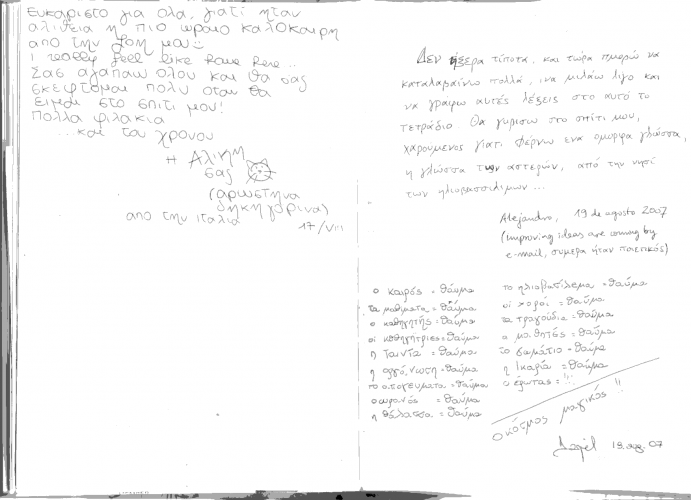 Ευκαριστο για ολα, γιατί ηταν
αλιθεια η πιο ωραιο καλοκαιρη
από την ζοη μου
I really feel like
Σας αγαπαω ολου και θα σας
σκεφτομαι πολυ οταν θα
ειμαι στο σπιτι μου!
Πολλα φιλακια
...και του χρονου
Η Αλικη
σας
(αρωστηνα
από την ιταλια
17/VIII
Δεν ήξερα τίποτα, και τώρα μπορώ να
καταλαβαίνω πολλά, να μιλάω λίγο και
να γραψω αυτές λέξεις στο αυτό το
τετράδιο. Θα γυρισω στο σπίτι μου,
χαρούμενος γιατι φέρνω ενα ομορφα γλώσσα,
η γλώσσα των αστερών, από την νησί
των ηλιοβασσιλιμων ...
Alejandro, 19 de agosto 2007
(improving ideas are coming by
e-mail, συμερα ήταν ποιετικός)
ο καιρός = θαύμα
τα μαθιματα = θαύμα
ο καθηγητής = θαύμα
οι καθηγήτριες = θαύμα
η Ταινία = θαύμα
η = θαύμα
το απογευματα = θαύμα
ο ουρανός = θαύμα
η θαλασσα = θαύμα
το ηλιοβασίλεμα = θαύμα
οι χοροί = θαύμα
τα τραγούδια = θαύμα
ο μαθητές = θαύμα
το δωμάτιο = θαύμα
η Ικαρία = θαύμα
ο έρωτας = !!!
Ο κόσμος μαγικός !!
07